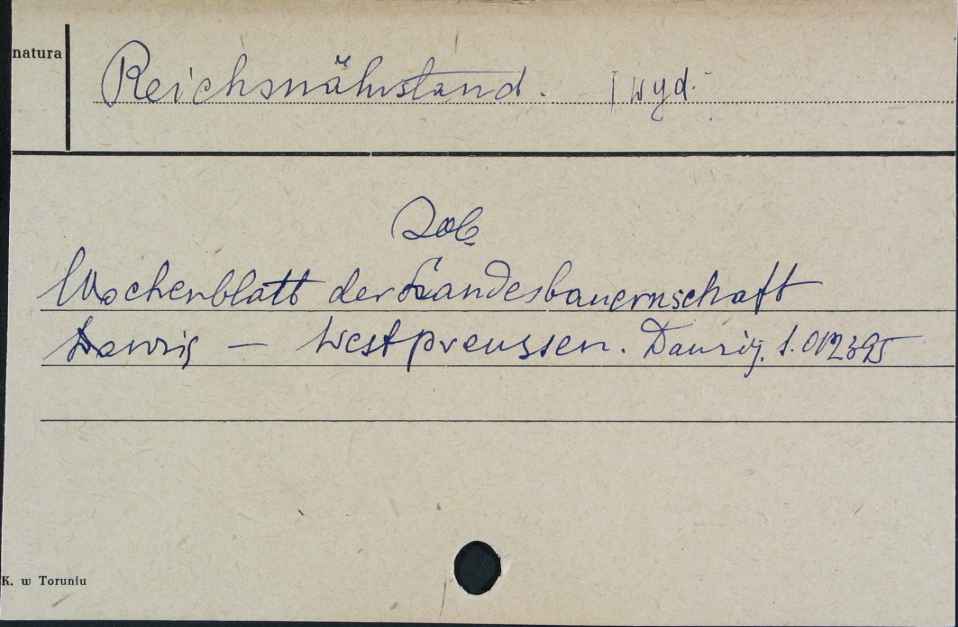 natura
Reichsnährstand. [wyd.
Zob.
Wochenblatt der Landesbauernschaft
Danzig — Westpreussen. Danzig. S. 012395
K. w Toruniu